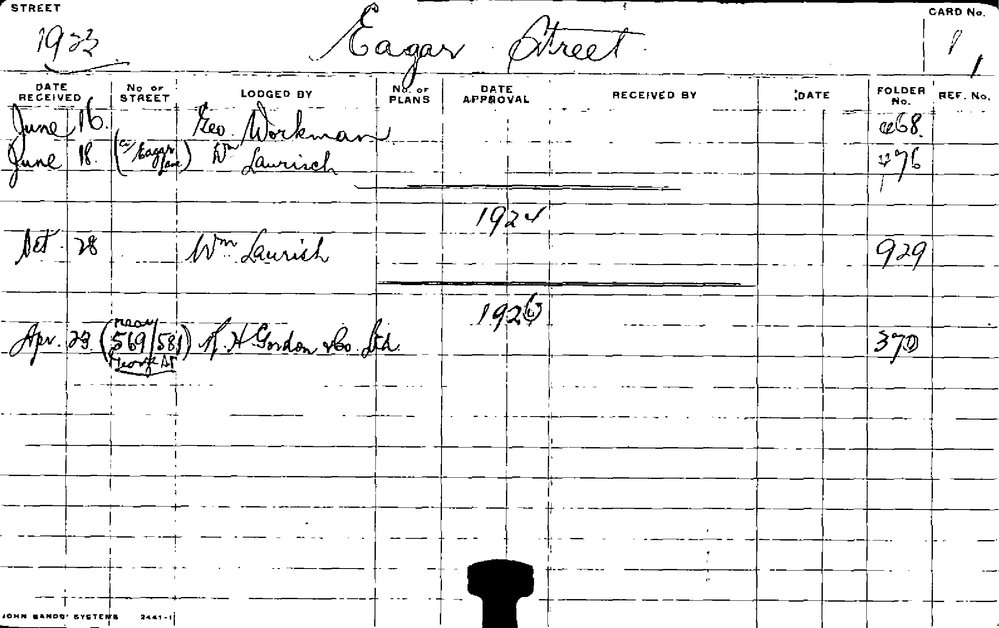 STREET
Eagar Street
CARD No.
1923
1
DATE RECEIVED No OF STREET LODGED BY No. OF PLANS DATE APPROVAL RECEIVED BY DATE FOLDER No. REF. No.
June 16. Geo. Workman 268.
June 18. (Eagar Lane) Wm Laurisch 276
1924
Oct. 28 Wm Laurish 929
1926
Apr. 23 (569/581 George St) R. H Gordon & Co. Ltd. 370
JOHN SANDS' SYSTEMS 2441-1